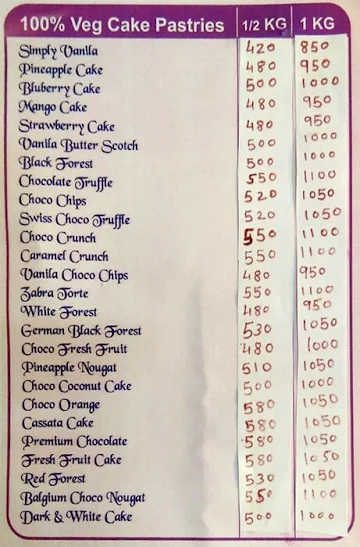 100% Veg Cake Pastries 1/2 KG 1 KG
Simply Vanila 420 850
Pineapple Cake 480 950
Bluberry Cake 500 1000
Mango Cake 480 950
Strawberry Cake 480 950
Vanila Butter Scotch 500 1000
Black Forest 500 1000
Chocolate Truffle 550 1100
Choco Chips 520 1050
Swiss Choco Truffle 520 1050
Choco Crunch 550 1100
Caramel Crunch 550 1100
Vanila Choco Chips 480 950
Zabra Torte 550 1100
White Forest 480 950
German Black Forest 530 1050
Choco Fresh Fruit 480 1000
Pineapple Nougat 510 1050
Choco Coconut Cake 500 1000
Choco Orange 580 1050
Cassata Cake 580 1050
Premium Chocolate 580 1050
Fresh Fruit Cake 580 1050
Red Forest 530 1050
Balgium Choco Nougat 550 1100
Dark & White Cake 500 1000